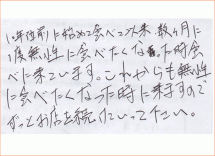 10年位前に始めて食べて以来、数ヶ月に
1度無性に食べたくなった時食
べに来ています。これからも無性
に食べたくなった時に来ますので
ずっとお店を続けていって下さい。